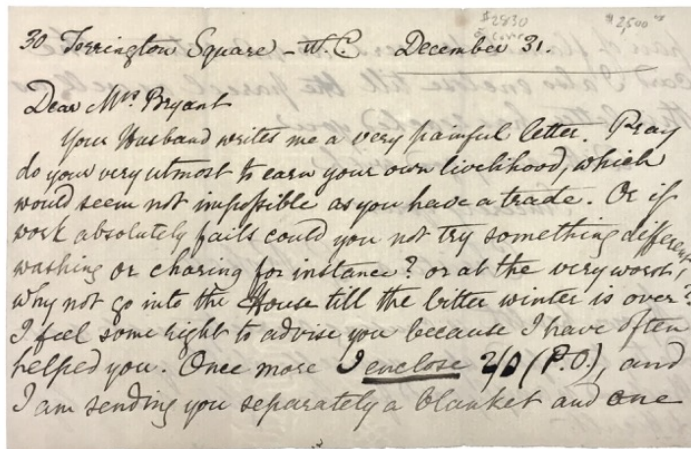 $2830
& cover
$2,500
30 Torrington Square – W.C. December 31.
Dear Mrs Bryant
Your Husband writes me a very painful letter. Pray
do your very utmost to earn your own livelihood, which
would seem not impossible as you have a trade. Or if
work absolutely fails could you not try something different,
washing or charing for instance? or at the very worst,
why not go into the House till the bitter winter is over?
I feel some right to advise you because I have often
helped you. Once more I enclose 2/0 (P.O.), and
I am sending you separately a blanket and one